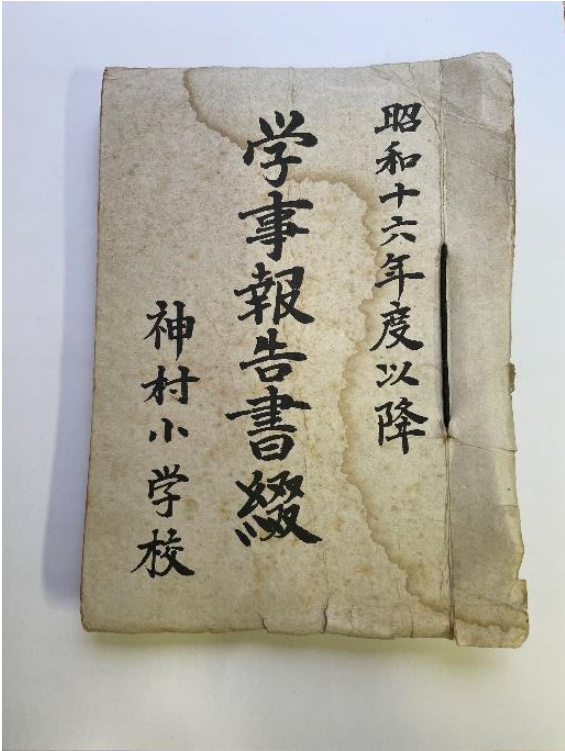 昭和十六年度以降
学事報告書綴
神村小学校